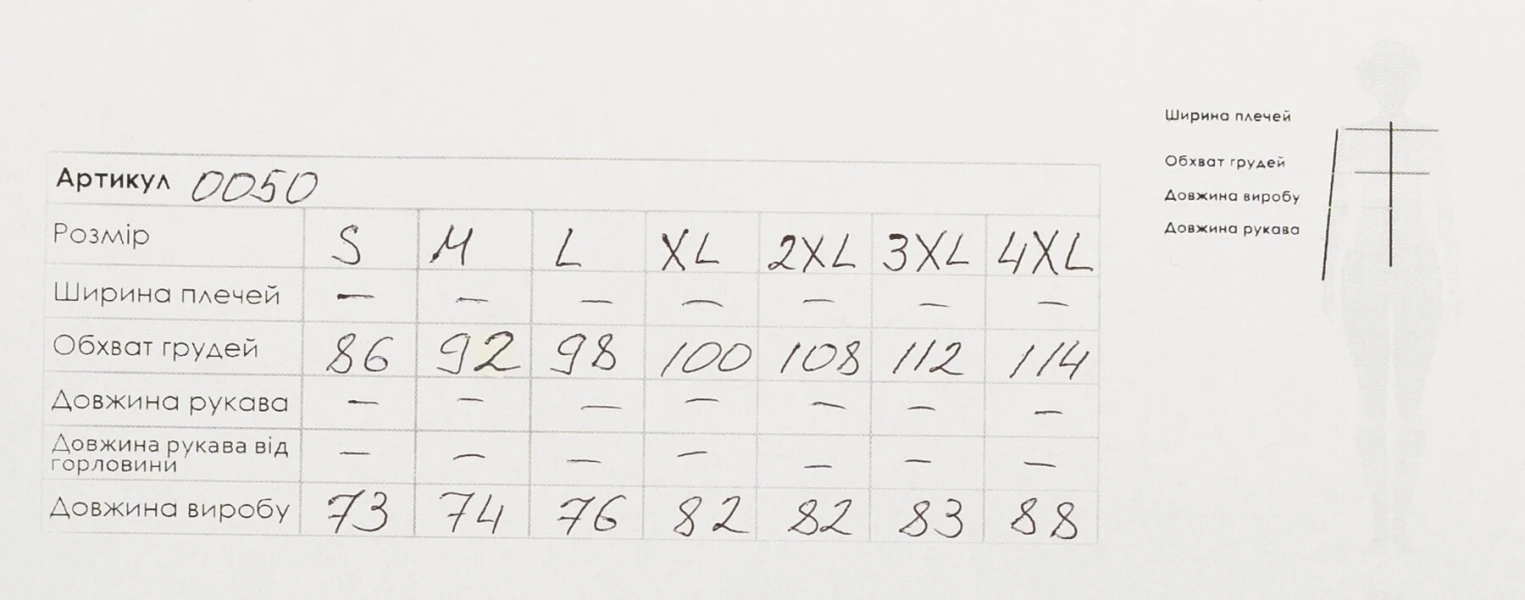 Артикул 0050
Розмір S M L XL 2XL 3XL 4XL
Ширина плечей — — — — — — —
Обхват грудей 86 92 98 100 108 112 114
Довжина рукава — — — — — — —
Довжина рукава від
горловини — — — — — — —
Довжина виробу 73 74 76 82 82 83 88
Ширина плечей
Обхват грудей
Довжина виробу
Довжина рукава